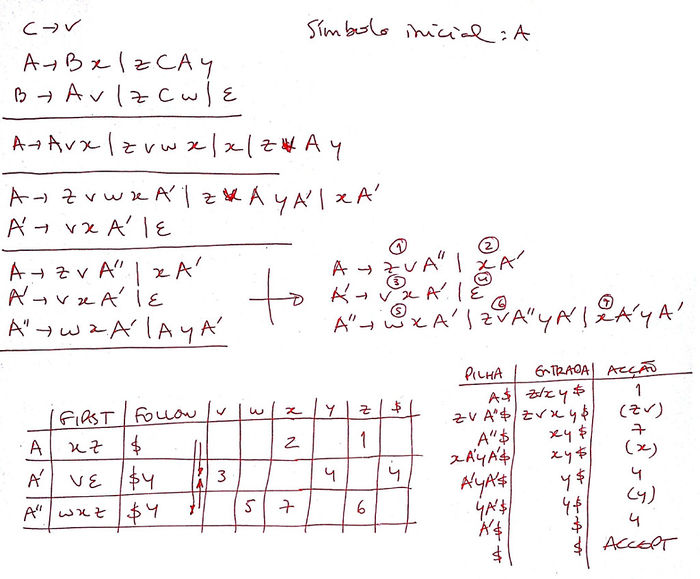 C → v
Símbolo inicial: A
A → B x | z C A y
B → A v | z C w | ε
A → A v x | z v w x | x | z v A y
A → z v w x A' | z v A y A' | x A'
A' → v x A' | ε
A → z v A'' | x A'
A' → v x A' | ε
A'' → w x A' | A y A'
① ②
A → z v A'' | x A'
③ ④
A' → v x A' | ε
⑤ ⑥ ⑦
A'' → w x A' | z v A'' y A' | x A' y A'
FIRST FOLLOW v w x y z $
A x z $ 2 1
A' v ε $ y 3 4 4
A'' w x z $ y 5 7 6
PILHA ENTRADA ACÇÃO
A$ zvxy$ 1
z v A''$ z v x y $ (z v)
A''$ x y $ 7
xA'yA'$ x y $ (x)
A'yA'$ y $ 4
yA'$ y $ (y)
A'$ $ 4
$ $ ACCEPT